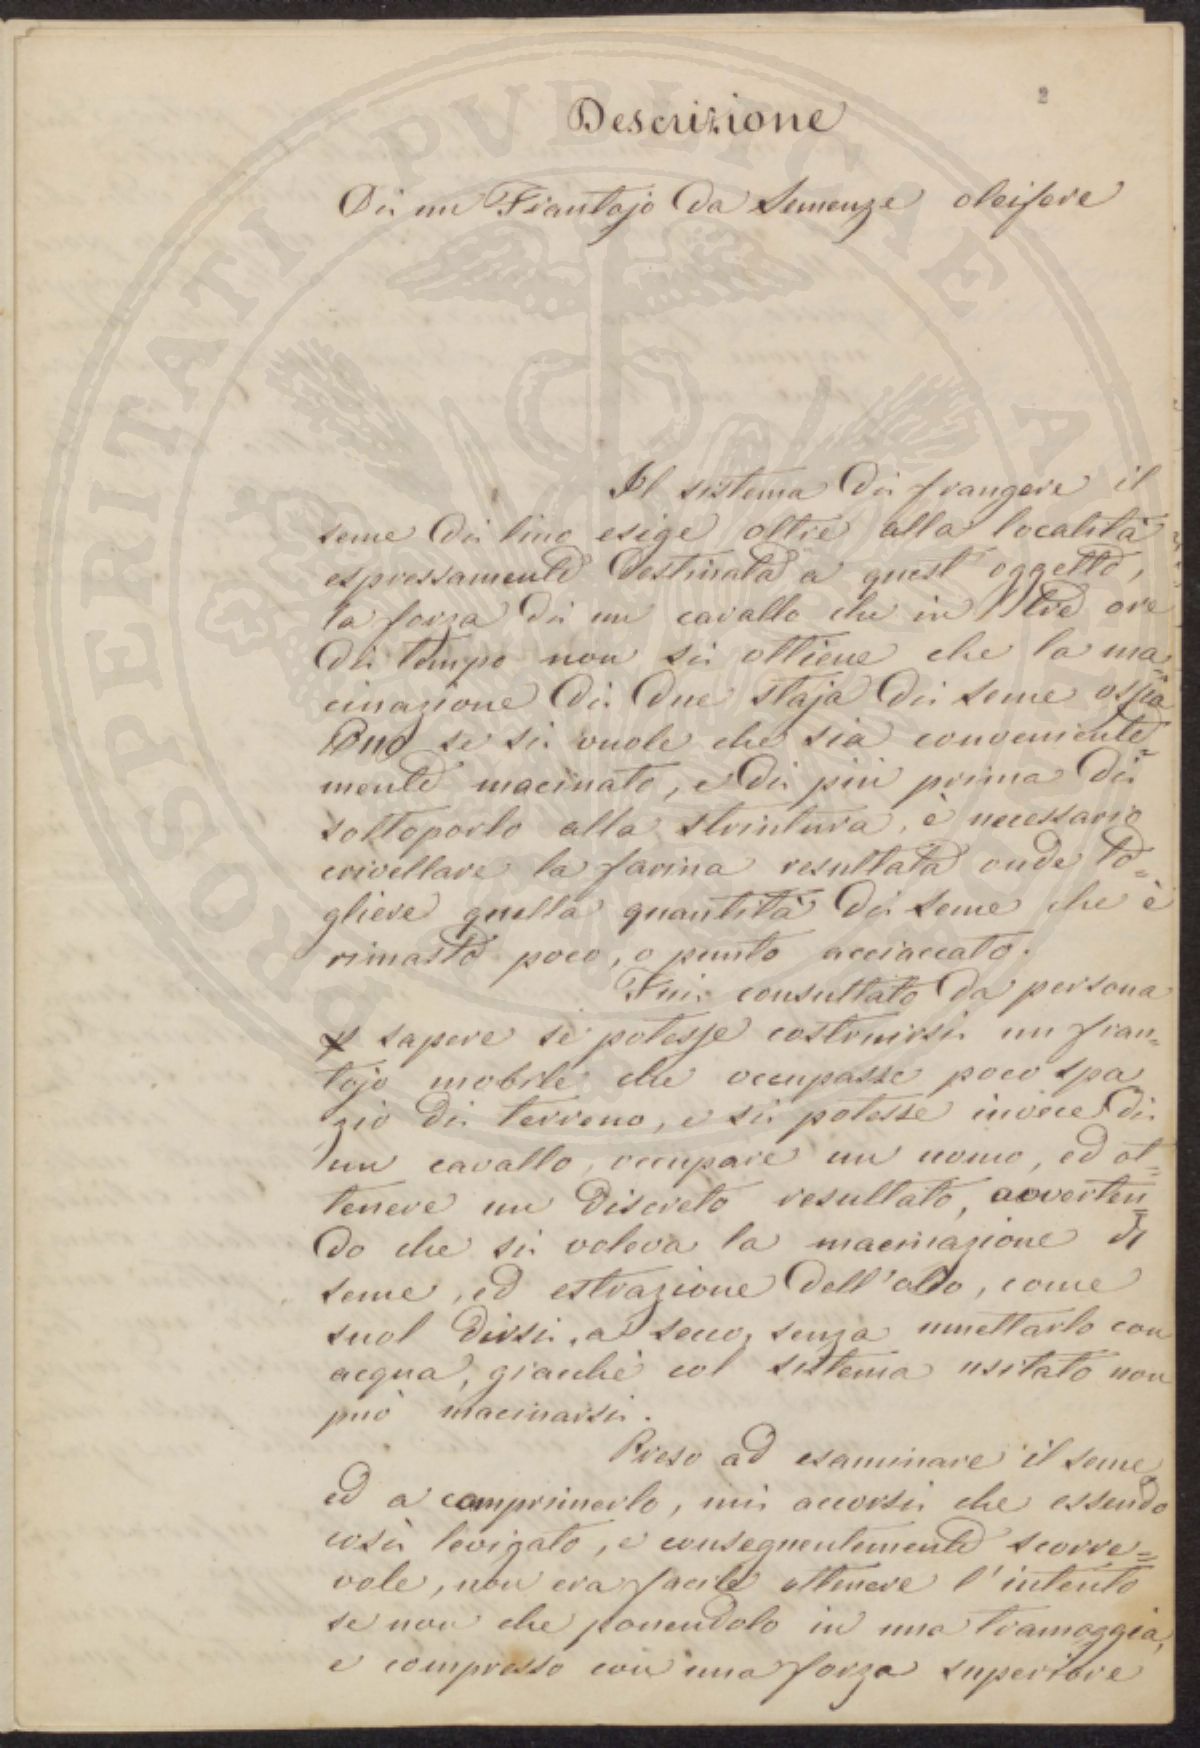 2
Descrizione
Di un Frantojo da Semenze oleifere
Il sistema di frangere il
seme di lino esige oltre alla località
espressamente destinata a quest'oggetto,
la forza di un cavallo che in tre ore
di tempo non si ottiene che la ma=
cinazione di due staja di seme ossia
Due se si vuole che sia conveniente=
mente macinato, e di più prima di
sottoporlo alla strintura, è necessario
crivellare la farina resultata onde to=
gliere quella quantità di seme che è
rimasto poco, o punto acciaccato.
Fui consultato da persona
p sapere se potesse costruirsi un fran=
tojo mobile che occupasse poco spa
zio di terreno, e si potesse invece di
un cavallo, occupare un uomo, ed ot=
tenere un discreto resultato, avverten=
do che si voleva la macinazione di
seme, ed estrazione dell'olio, come
suol dirsi, a secco, senza umettarlo con
acqua, giacchè col sistema usitato non
può macinarsi.
Preso ad esaminare il seme
ed a comprimerlo, mi accorsi che essendo
così levigato, e conseguentemente scorre=
vole, non era facile ottenere l'intento
se non che ponendolo in una tramoggia,
e compresso con una forza superiore
PROSPERITATI PVBLICAE